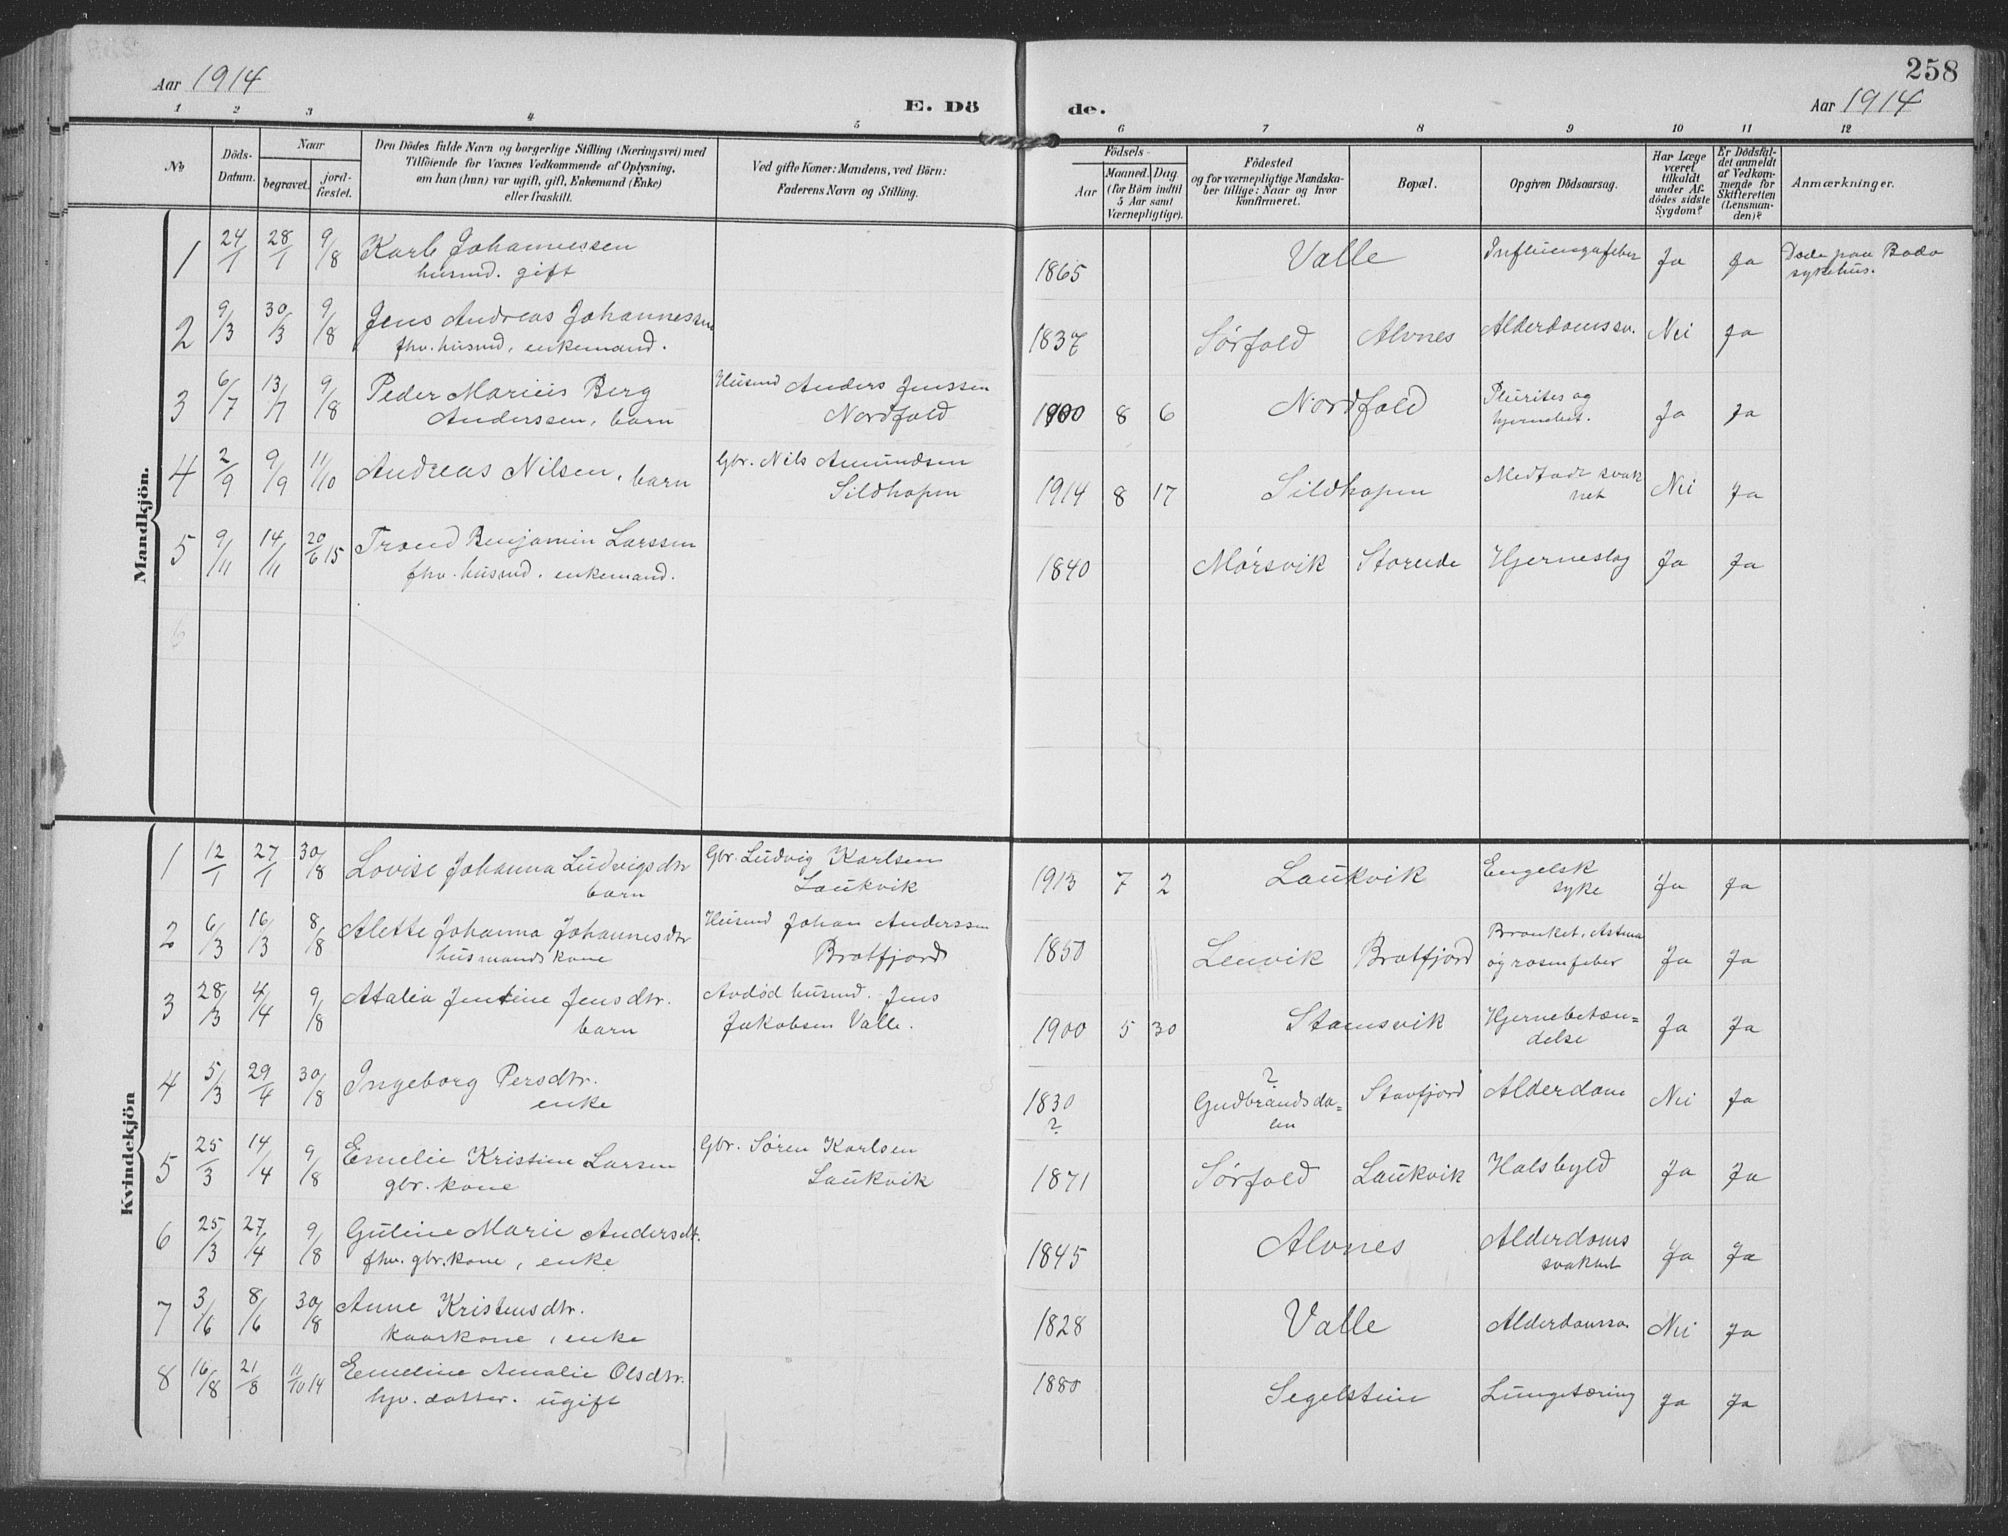 258
Aar 1914
E. Dö
de.
Aar 1914
1 2 3 4 5 6 7 8 9 10 11 12
No
Döds-Datum.
Naar
begravet.
jord-fæstet.
Den Dödes fulde Navn og borgerlige Stilling (Næringsvei) med
Tilföiende for Voxnes Vedkommende af Oplysning,
om han (hun) var ugift, gift, Enkemand (Enke)
eller fraskilt.
Ved gifte Koner: Mandens, ved Börn:
Faderens Navn og Stilling.
Födsels-
Aar
Maaned. Dag.
(for Börn indtil
5 Aar samt
Værnepligtige).
Födested
og for værnepligtige Mandska-
ber tillige: Naar og hvor
konfirmeret.
Bopæl.
Opgiven Dödsaarsag.
Har Læge
været
tilkaldt
under Af-
dödes sidste
Sygdom?
Er Dödsfal-
det anmeldt
af Vedkom-
mende for
Skifteretten
(Lensman-
den)?
Anmærkninger.
Mandkjön.
1 24/1 28/1 9/8 Karl Johannessen 1865 Valle Influenzafeber Ja Ja Døde paa Bodø
husmd. gift sykehus.
2 9/3 30/3 9/8 Jens Andreas Johannessen 1837 Sørfold Alvnes Alderdomssv. Nei Ja
fhv. husmd, enkemand.
3 6/7 13/7 9/8 Peder Marius Berg Husmd Anders Jenssen 1900 8 6 Nordfold Plurites og Ja Ja
Anderssen, barn Nordfold hjernebet.
4 2/9 9/9 11/10 Andreas Nilsen, barn Gbr. Nils Amundsen 1914 8 17 Sildhopen Medfødt svak Nei Ja
Sildhopen het
5 9/11 14/11 20/6 15 Trond Benjamin Larssen 1840 Mørsvik Storeide Hjerneslag Ja Ja
fhv. husmd. enkemand.
6
Kvindekjön
1 12/1 27/1 30/8 Lovise Johanna Ludvigsdtr Gbr. Ludvig Karlsen 1913 7 2 Laukvik Engelsk Ja Ja
barn Laukvik syke
2 6/3 16/3 8/8 Alette Johanna Johannesdtr Husmd Johan Anderssen 1850 Lenvik Bratfjord Bronket, Astma Ja Ja
husmands kone Bratfjord og rosenfeber
3 28/3 4/4 9/8 Atalia Jentine Jensdtr. Avdød husmd. Jens 1900 5 30 Stamsvik Hjernebetæn= Ja Ja
barn Jakobsen Valle. delse
4 5/3 29/4 30/8 Ingeborg Persdtr. 1830 ? ? Gudbrandsda= Stavfjord Alderdom Nei Ja
enke len
5 25/3 14/4 9/8 Emelie Kristine Larsen Gbr. Søren Karlsen 1871 Sørfold Laukvik Halsbyld Ja Ja
gbr. kone Laukvik
6 25/3 27/4 9/8 Guline Marie Andersdt. 1845 Alvnes Alderdoms Ja Ja
fhv. gbr. kone, enke svakhet
7 3/6 8/6 30/8 Anne Kristensdtr. 1828 Valle Alderdomssv. Nei Ja
kaarkone, enke
8 16/8 21/8 11/10 14 Emeline Amalie Olsdtr. 1880 Segelstein Lungetæring Ja Ja
hjv. datter. ugift